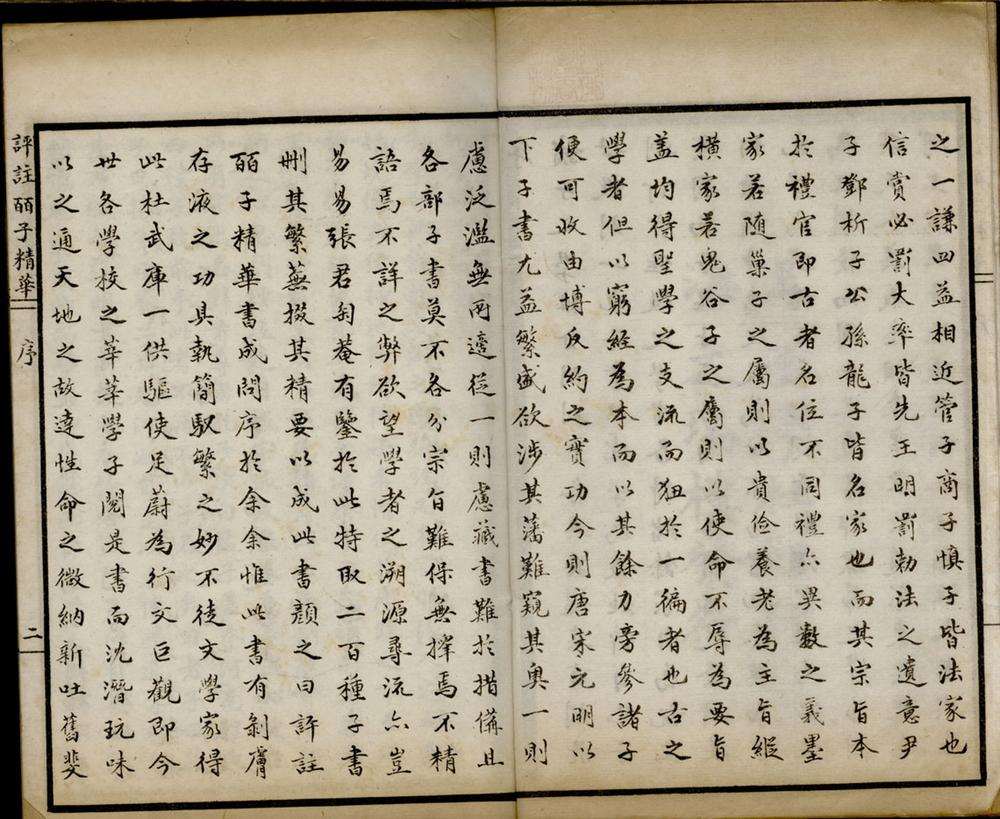 之一謙四益相近管子商子慎子皆法家也
信賞必罰大率皆先王明罰勅法之遺意尹
子鄧析子公孫龍子皆名家也而其宗旨本
於禮官即古者名位不同禮亦異數之義墨
家若隨巢子之屬則以貴儉養老為主旨縱
橫家若鬼谷子之屬則以使命不辱為要旨
盖均得聖學之支流而狃於一徧者也古之
學者但以窮經為本而以其餘力旁參諸子
便可收由博反約之實功今則唐宋元明以
下子書尤益繁盛欲涉其藩難窺其奧一則
慮泛濫無所適從一則慮藏書難於措備且
各部子書莫不各分宗旨難保無擇焉不精
語焉不詳之弊欲望學者之溯源尋流亦豈
易易張君匋菴有鑒於此特取二百種子書
刪其繁蕪掇其精要以成此書顏之曰評註
皕子精華書成問序於余余惟此書有剝膚
存液之功具執簡馭繁之妙不徒文學家得
此杜武庫一供驅使足蔚為行文巨觀即今
世各學校之莘莘學子閱是書而沈潛玩味
以之通天地之故達性命之微納新吐舊斐
評註皕子精華
序
二